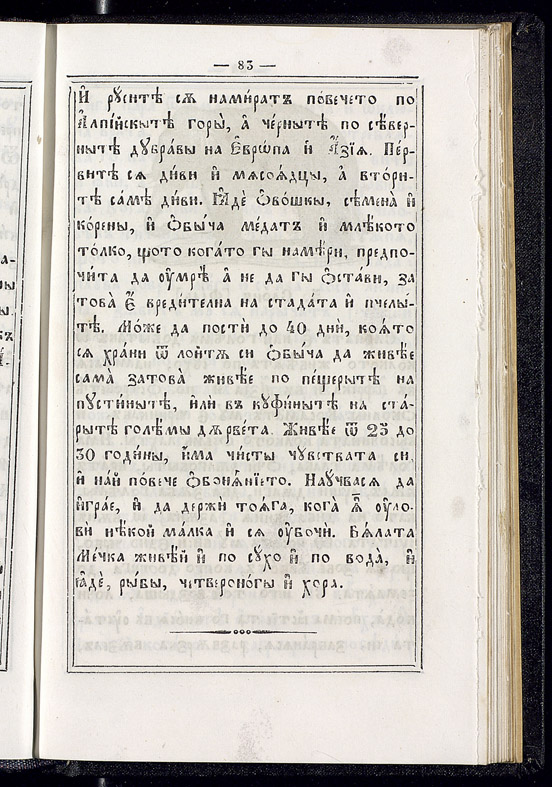 — 83 —
И҆ рꙋситѣ сѧ намѝратъ по́вечето по
А҆лпі́йскытѣ горы̀, а҆ че́рнытѣ по сѣ́вер-
нытѣ дꙋбра́вы на Е҆врѡ́па и҆ А҆́зїѧ. Пе́р-
витѣ сѧ дѝви и҆ мѧсоѧ́дцы, а҆ вто́ри-
тѣ са́мѣ дѝви. Ꙗ҆дѐ Ѻ҆во́шкы, сѣ́мена̀ и҆
ко́рены, и҆ Ѻ҆бы́ча ме́датъ и҆ млѣ́кото
то́лко, щото кога́то гы намѣ́ри, предпо-
чѝта да оу҆мрѣ̀ а҆ не да гы Ѻ҆ста́ви, за
това̀ Е҆̀ вредѝтелна на стада́та и҆ пчелы́-
тѣ. Мо́же да постѝ до 40 днѝ, коѧто
сѧ хра́ни ѿ лоитѫ си Ѻ҆бы́ча да живѣ́е
сама̀ затова̀ живѣ́е по пе́щерытѣ на
пꙋсти́нытѣ, и҆лѝ въ кꙋфи́нытѣ на ста́-
рытѣ голѣ́мы дъ́рве́та. Живѣ́е ѿ 25 до
30 годи́ны, и҆́ма чи́сты чꙋ́вствата си,
и҆ на́й повече Ѻ҆бонѧ́нїето. Наꙋ́чвасѧ да
и҆гра́е, и҆ да держѝ тоѧ́га, кога̀ ѭ҆̀ оу҆ло-
вѝ нѣ́кой ма́лка и҆ сѧ оу҆́вочи. Бѧ́лата
Ме́чка живѣ́й и҆ по сꙋ́хо и҆ по вода̀, и҆
ꙗ҆дѐ, ры́бы, четвероно́гы и҆ хора.